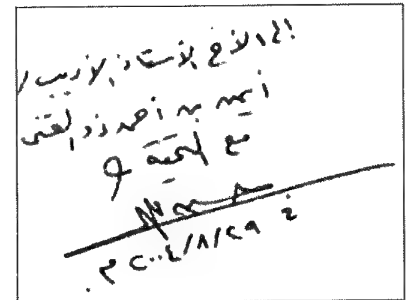 إلى الأخ الأستاذ الأديب /
أيمن بن أحمد ذو الغنى
مع التحية و
في ٢٠٠٤/٨/٢٩ م.